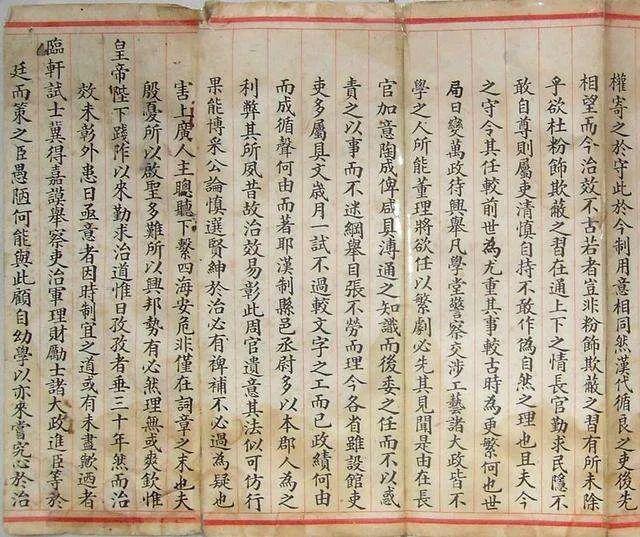 權寄之於守此於今制用意相同然漢代循良之吏後先
相望而今治效不古若者豈非粉飾欺蔽之習有所未除
乎欲杜粉飾欺蔽之習在通上下之情長官勤求民隱不
敢自尊則屬吏清慎自持不敢作偽自然之理也且夫今
之守令其任較前世為尤重其事較古時為更繁何也世
局日變萬政待興舉凡學堂警察交涉工藝諸大政皆不
學之人所能董理將欲任以繁劇必先其見聞是由在長
官加意陶成俾咸具溥通之知識而後委之任而不以惑
責之以事而不迷綱舉目張不勞而理今各省雖設館吏
吏多屬具文歲月一試不過較文字之工而已政績何由
而成循聲何由而著耶漢制縣邑丞尉多以本郡人為之
利弊其所夙昔故治效易彰此周官遺意其法似可仿行
果能博采公論慎選賢紳於治必有裨補不必過為疑也
害上廣人主聰聽下繫四海安危非僅在詞章之末也夫
殷憂所以啟聖多難所以興邦勢有必然理無或爽欽惟
皇帝陛下踐阼以來勤求治道惟日孜孜者垂三十年然而治
效未彰外患日亟意者因時制宜之道或有未盡歟逎者
臨軒試士冀得嘉謨舉察吏治軍理財勵士諸大政進臣等於
廷而策之臣愚陋何能與此顧自幼學以亦來嘗究心於治